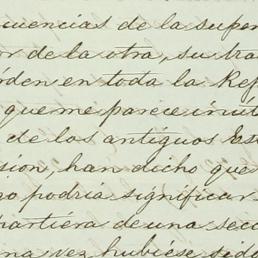 cuencias de la super
or de la otra, su tra
orden en toda la Re
que me parece inuti
de los antiguos Es
sion, han dicho que
podria significar
partiera de una sec
na vez hubiese sido